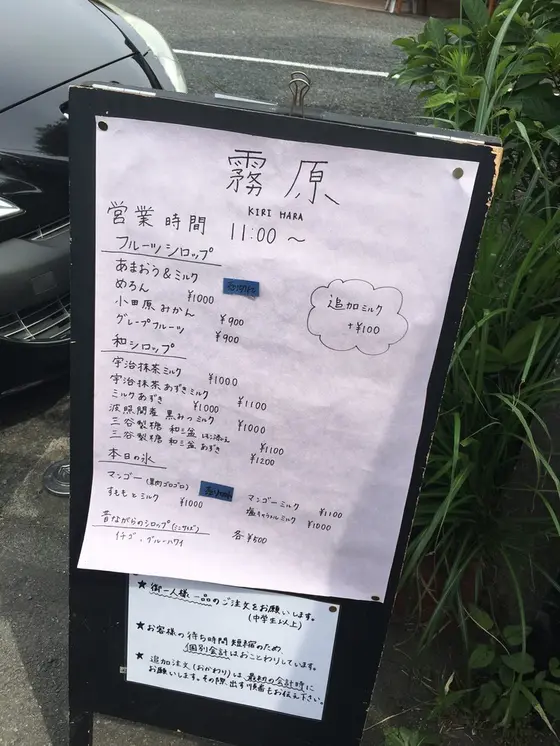 霧原
KIRI HARA
営業時間 11:00 〜
フルーツシロップ
あまおう&ミルク
めろん ¥1000
小田原みかん ¥900
グレープフルーツ ¥900
追加ミルク
+¥100
和シロップ
宇治抹茶ミルク ¥1000
宇治抹茶あずきミルク ¥1100
ミルクあずき ¥1000
波照間産 黒みつミルク ¥1000
三谷製糖 和三盆 ¥1100
三谷製糖 和三盆 あずき ¥1200
本日の氷
マンゴー(果肉ゴロゴロ)
すももとミルク ¥1000
マンゴーミルク ¥1100
塩キャラメルミルク ¥1000
昔ながらのシロップ(ミニサイズ)
イチゴ、ブルーハワイ 各¥500
★ 御一人様一品のご注文をお願いします。
(中学生以上)
★ お客様の待ち時間短縮のため、
個別会計はおことわりしています。
★ 追加注文(おかわり)は、最初の会計時に
お願いします。その際、出す順番もお伝え下さい。